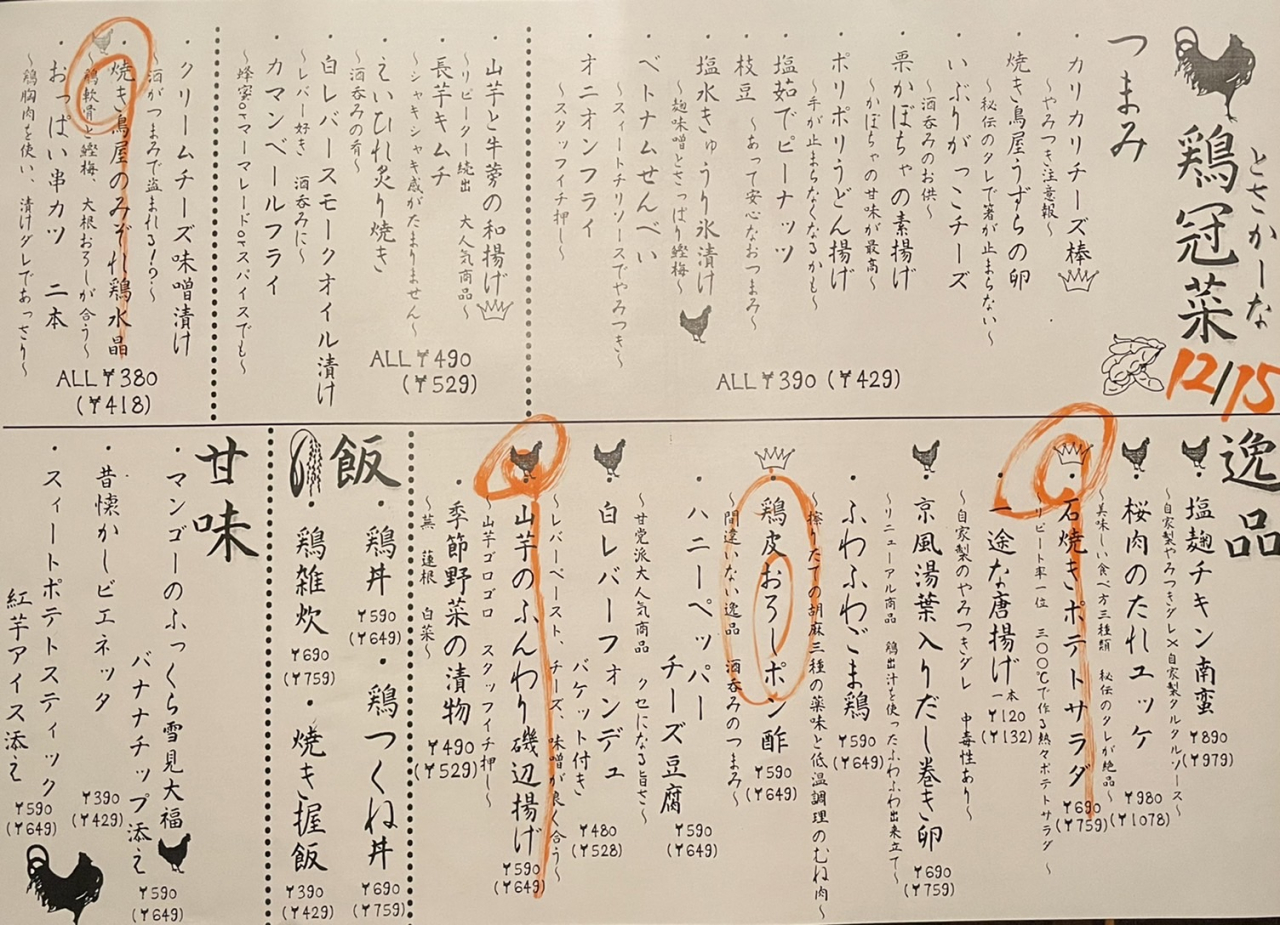 とさかーな
鶏冠菜
12/15
つまみ
・カリカリチーズ棒
〜やみつき注意報〜
・焼き鳥屋うずらの卵
〜秘伝のタレで箸が止まらない〜
・いぶりがっこチーズ
〜酒呑みのお供〜
・栗かぼちゃの素揚げ
〜かぼちゃの甘味が最高〜
・ポリポリうどん揚げ
〜手が止まらなくなるかも〜
・塩茹でピーナッツ
・枝豆 〜あって安心なおつまみ〜
・塩水きゅうり氷漬け
〜麹味噌とさっぱり鰹梅〜
・ベトナムせんべい
〜スィートチリソースでやみつき〜
・オニオンフライ
〜スタッフイチ押し〜
ALL ¥390 (¥429)
・山芋と牛蒡の和揚げ
〜リピーター続出 大人気商品〜
・長芋キムチ
〜シャキシャキ感がたまりません〜
・えいひれ炙り焼き
〜酒呑みの肴〜
・白レバースモークオイル漬け
〜レバー好き 酒呑みに〜
・カマンベールフライ
〜蜂蜜orマーマレードorスパイスでも〜
ALL ¥490
(¥529)
・クリームチーズ味噌漬け
〜酒がつまみで盗まれる!?〜
・焼き鳥屋のみぞれ鶏水晶
〜鶏軟骨と鰹梅、大根おろしが合う〜
・おっぱい串カツ 二本
〜鶏胸肉を使い、漬けダレであっさり〜
ALL ¥380
(¥418)
逸品
・塩麹チキン南蛮 ¥890 (¥979)
〜自家製やみつきダレ×自家製タルタルソース〜
・桜肉のたれユッケ ¥980 (¥1078)
〜美味しい食べ方三種類 秘伝のタレが絶品〜
・石焼きポテトサラダ ¥690 (¥759)
〜リピート率一位 三〇〇℃で作る熱々ポテトサラダ〜
・一途な唐揚げ 一本 ¥120 (¥132)
〜自家製のやみつきダレ 中毒性あり〜
・京風湯葉入りだし巻き卵 ¥690 (¥759)
〜リニューアル商品 鶏出汁を使ったふわふわ出来立て〜
・ふわふわごま鶏 ¥590 (¥649)
〜擦りたての胡麻三種の薬味と低温調理のむね肉〜
・鶏皮おろしポン酢 ¥590 (¥649)
〜間違いない逸品 酒呑みのつまみ〜
・ハニーペッパー
チーズ豆腐 ¥590 (¥649)
〜甘党派大人気商品 クセになる旨さ〜
・白レバーフォンデュ
バケット付き ¥480 (¥528)
〜レバーペースト、チーズ、味噌が良く合う〜
・山芋のふんわり磯辺揚げ ¥590 (¥649)
〜山芋ゴロゴロ スタッフイチ押し〜
・季節野菜の漬物 ¥490 (¥529)
〜蕪 蓮根 白菜〜
飯
・鶏丼 ¥590 (¥649)
・鶏つくね丼 ¥690 (¥759)
・鶏雑炊 ¥690 (¥759)
・焼き握飯 ¥390 (¥429)
甘味
・マンゴーのふっくら雪見大福
バナナチップ添え ¥590 (¥649)
・昔懐かしビエネッタ ¥390 (¥429)
・スィートポテトスティック
紅芋アイス添え ¥590 (¥649)